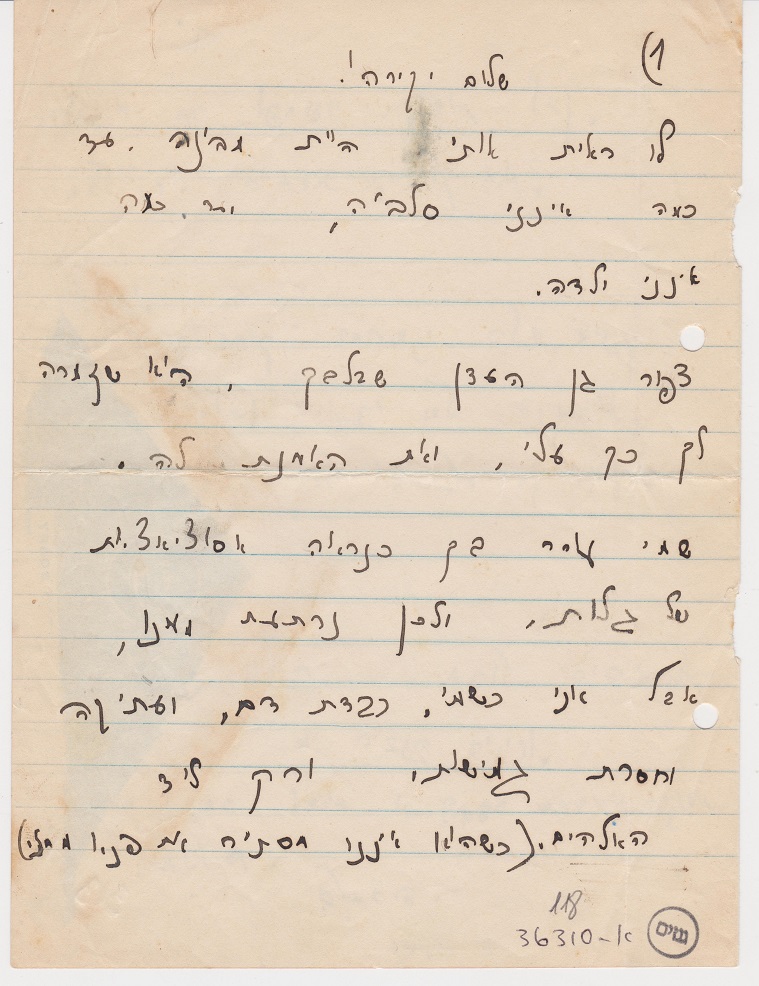 (1
שלום יקירה!
לו ראית אותי היית מבינה. עד
כמה אינני סלבית, וגם כמה
אינני ילדה.
צפור גן העדן שבלבך, היא שזמרה
לך כך עלי, ואת האמנת לה.
שמי עורר בך כנראה אסוציאציות
של גלות, ולכן נרתעת ממנו,
אבל אני כשמי, כבדת דם, ועתיקה
וחסרת גמישות, ורק ליד
האלהים. (כשהוא איננו מסתיר את פניו ממני)
118
א-36310